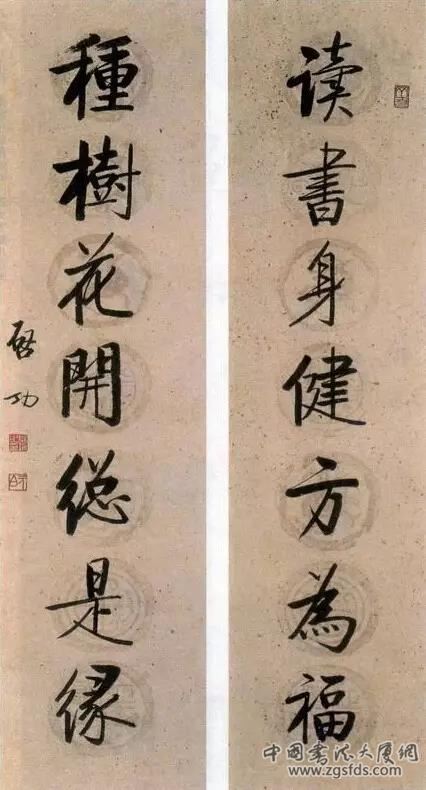 读書身健方為福
種樹花開総是缘
啓功
中國書法大厦網
www.zgsfds.com